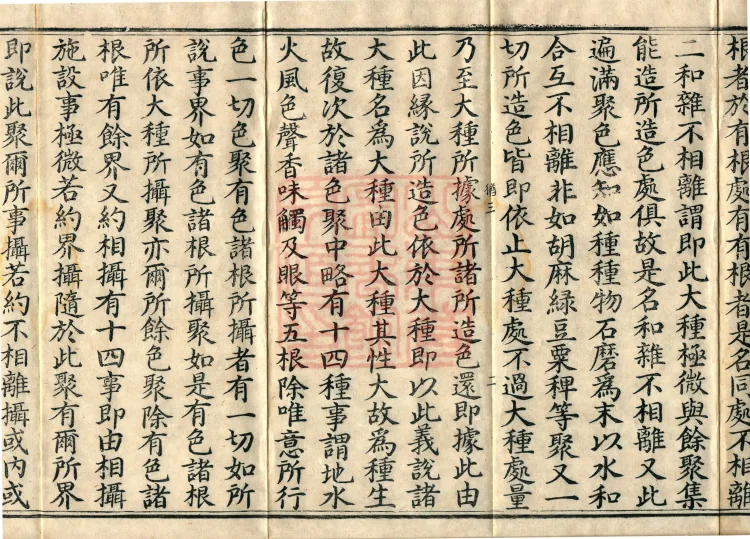 根者於有根處有有根者是名同處不相離
二和雜不相離謂即此大種極微與餘聚集
能造所造色處俱故是名和雜不相離又此
遍滿聚色應知如種種物石磨為末以水和
合互不相離非如胡麻綠豆粟稗等聚又一
切所造色皆即依止大種處不過大種處量
乃至大種所據處所諸所造色還即據此由
此因緣說所造色依於大種即以此義說諸
大種名為大種由此大種其性大故為種生
故復次於諸色聚中略有十四種事謂地水
火風色聲香味觸及眼等五根除唯意所行
色一切色聚有色諸根所攝者有一切如所
說事界如有色諸根所攝聚如是有色諸根
所依大種所攝聚亦爾所餘色聚除有色諸
根唯有餘界又約相攝有十四事即由相攝
施設事極微若約界攝隨於此聚有爾所界
即說此聚爾所事攝若約不相離攝或內或